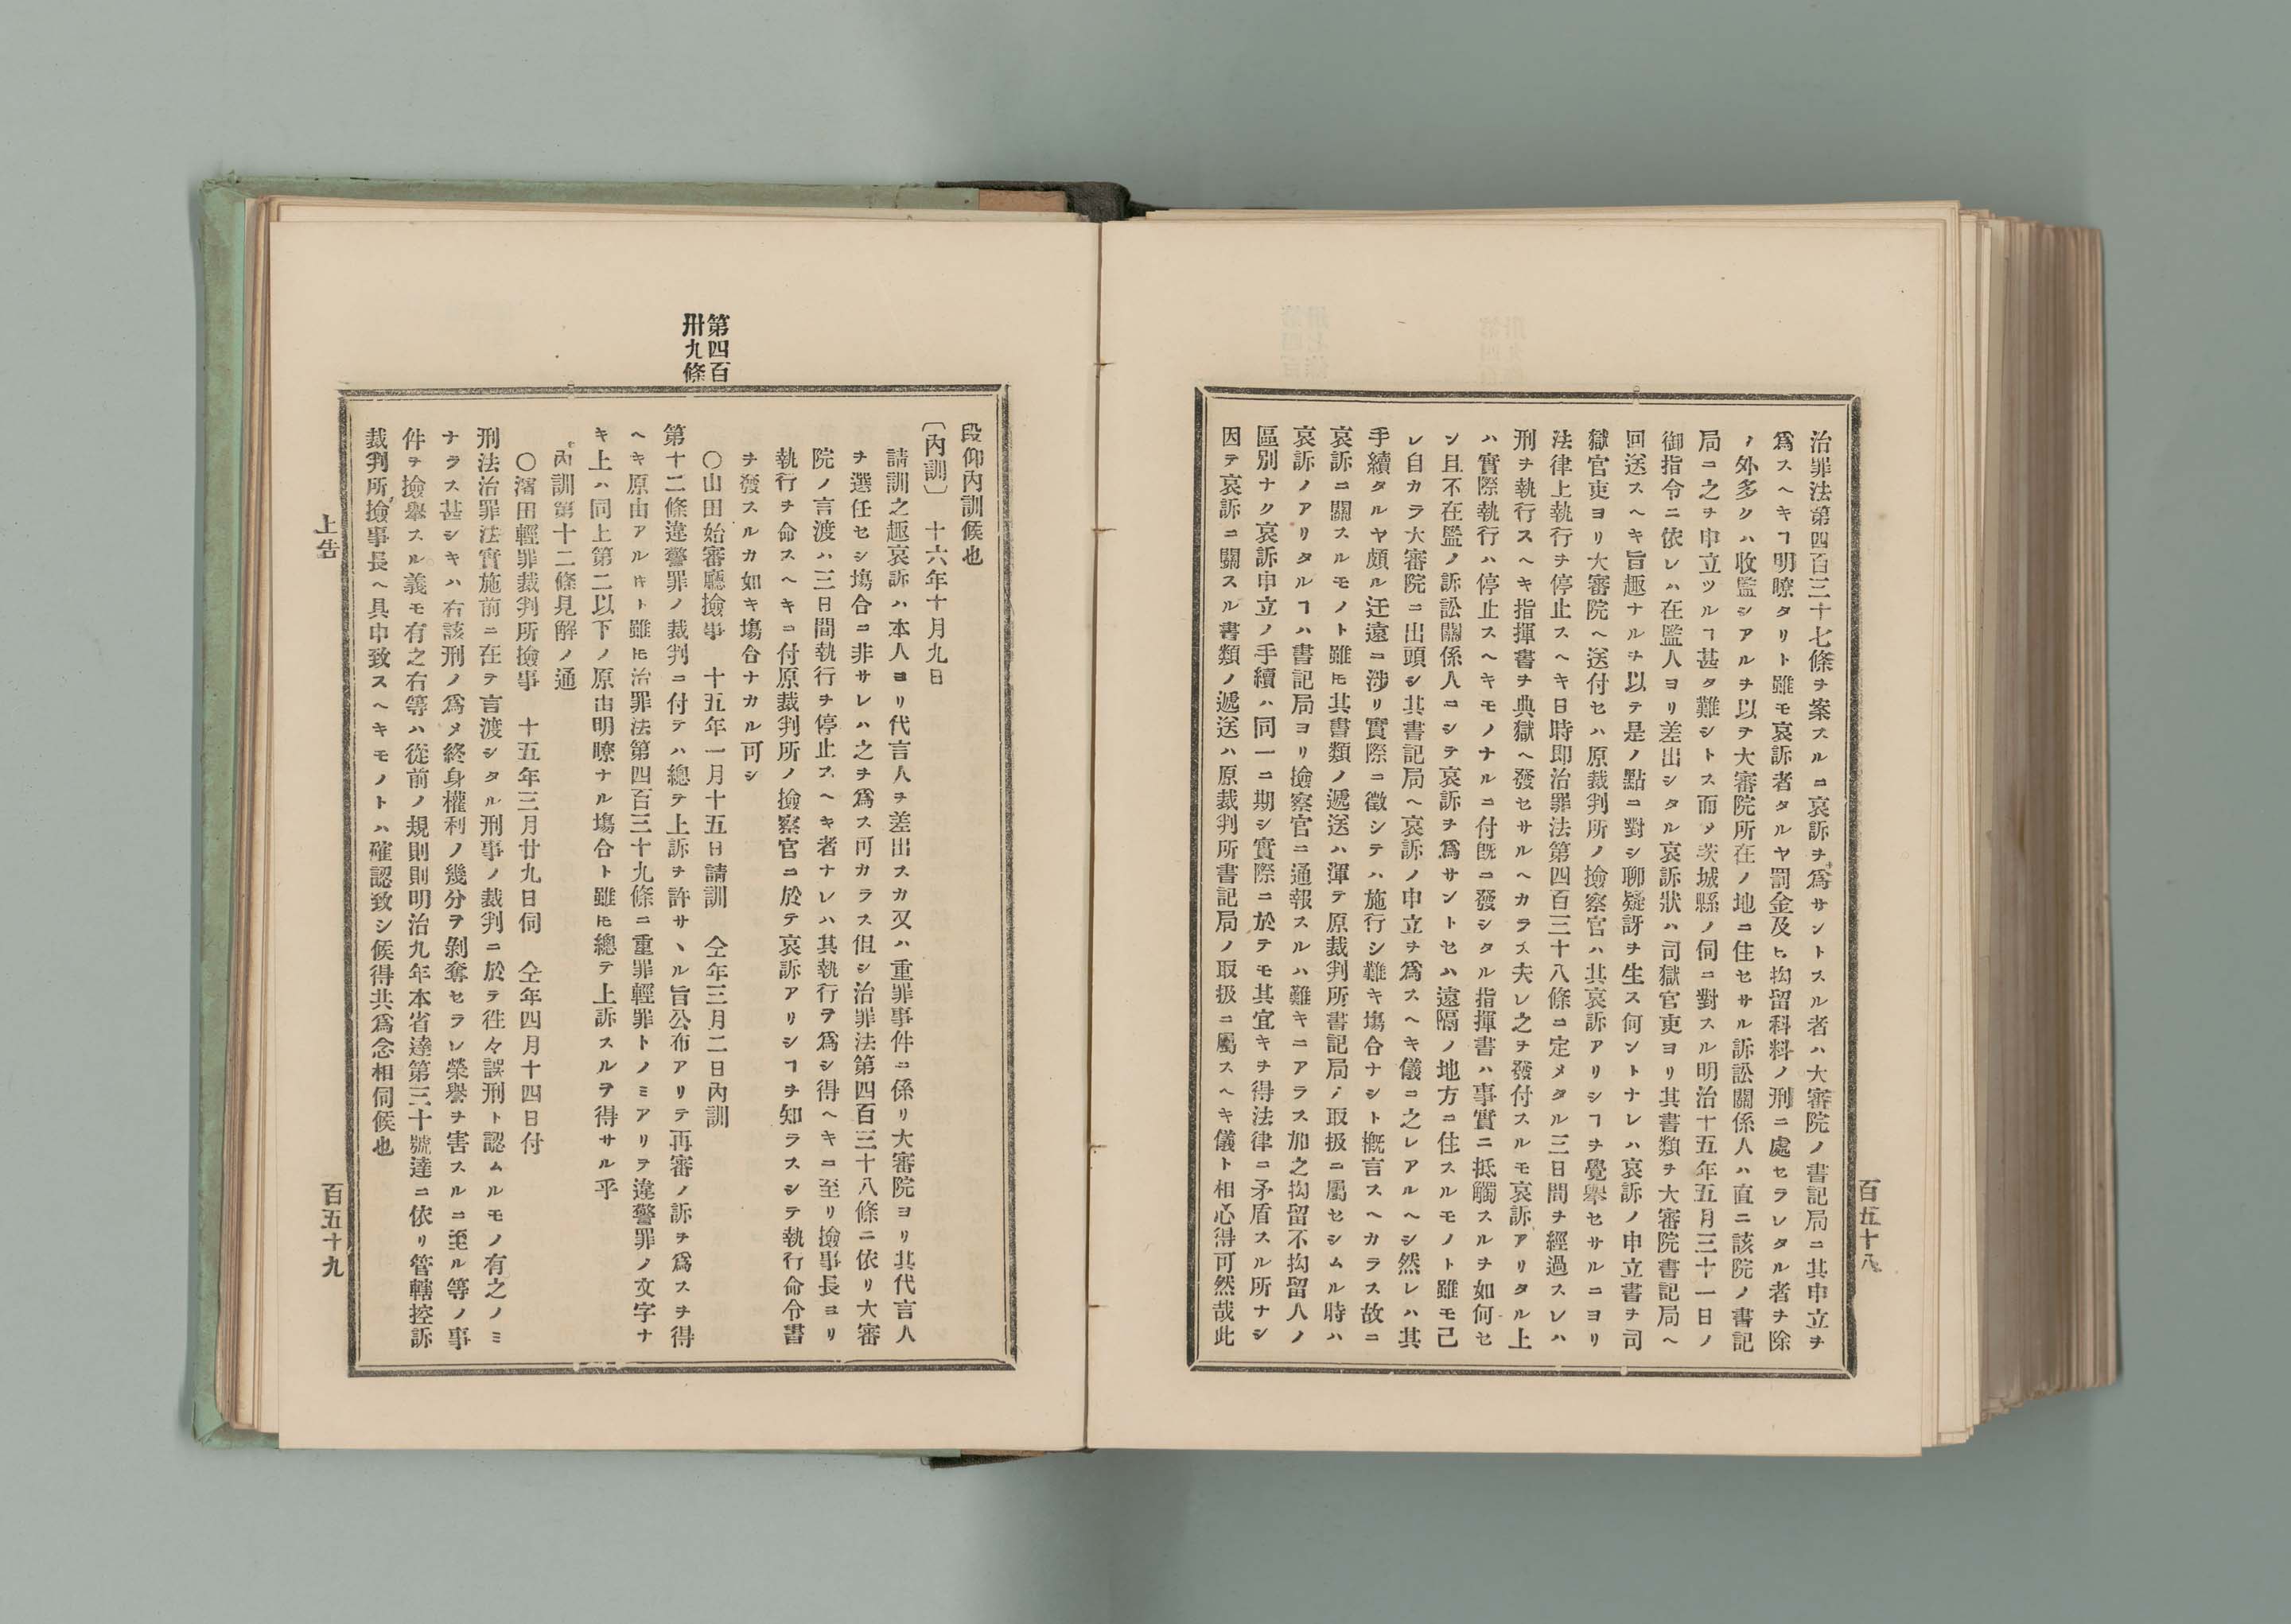 百五十八
治罪法第四百三十七條ヲ案スルニ哀訴ヲ爲サントスル者ハ大審院ノ書記局ニ其申立ヲ
爲スヘキヿ明瞭タリト雖モ哀訴者タルヤ罰金及ヒ拘留科料ノ刑ニ處セラレタル者ヲ除
ノ外多クハ收監シアルヲ以テ大審院所在ノ地ニ住セサル訴訟關係人ハ直ニ該院ノ書記
局ニ之ヲ申立ツルヿ甚タ難シトス而メ茨城縣ノ伺ニ對スル明治十五年五月三十一日ノ
御指令ニ依レハ在監人ヨリ差出シタル哀訴狀ハ司獄官吏ヨリ其書類ヲ大審院書記局ヘ
回送スヘキ旨趣ナルヲ以テ是ノ點ニ對シ聊疑訝ヲ生ス何ントナレハ哀訴ノ申立書ヲ司
獄官吏ヨリ大審院ヘ送付セハ原裁判所ノ撿察官ハ其哀訴アリシヿヲ覺擧セサルニヨリ
法律上執行ヲ停止スヘキ日時即治罪法第四百三十八條ニ定メタル三日間ヲ經過スレハ
刑ヲ執行スヘキ指揮書ヲ典獄ヘ發セサルヘカラス夫レ之ヲ發付スルモ哀訴アリタル上
ハ實際執行ハ停止スヘキモノナルニ付既ニ發シタル指揮書ハ事實ニ抵觸スルヲ如何セ
ン且不在監ノ訴訟關係人ニシテ哀訴ヲ爲サントセハ遠隔ノ地方ニ住スルモノト雖モ己
レ自カラ大審院ニ出頭シ其書記局ヘ哀訴ノ申立ヲ爲スヘキ儀ニ之レアルヘシ然レハ其
手續タルヤ頗ル迂遠ニ渉リ實際ニ徵シテハ施行シ難キ塲合ナシト概言スヘカラス故ニ
哀訴ニ關スルモノト雖𪜈其書類ノ遞送ハ渾テ原裁判所書記局ノ取扱ニ屬セシムル時ハ
哀訴ノアリタルヿハ書記局ヨリ撿察官ニ通報スルハ難キニアラス加之拘留不拘留人ノ
區別ナク哀訴申立ノ手續ハ同一ニ期シ實際ニ於テモ其宜キヲ得法律ニ矛盾スル所ナシ
因テ哀訴ニ關スル書類ノ遞送ハ原裁判所書記局ノ取扱ニ屬スヘキ儀ト相心得可然哉此
段仰內訓候也
〔內訓〕 十六年十月九日
請訓之趣哀訴ハ本人ヨリ代言人ヲ差出スカ又ハ重罪事件ニ係リ大審院ヨリ其代言人
ヲ選任セシ塲合ニ非サレハ之ヲ爲ス可カラス但シ治罪法第四百三十八條ニ依リ大審
院ノ言渡ハ三日間執行ヲ停止スヘキ者ナレハ其執行ヲ爲シ得ヘキニ至リ撿事長ヨリ
執行ヲ命スヘキニ付原裁判所ノ撿察官ニ於テ哀訴アリシヿヲ知ラスシテ執行命令書
ヲ發スルカ如キ塲合ナカル可シ
第四百
卅九條
〇山田始審廳撿事 十五年一月十五日請訓 仝年三月二日內訓
第十二條違警罪ノ裁判ニ付テハ總テ上訴ヲ許サヽル旨公布アリテ再審ノ訴ヲ爲スヲ得
ヘキ原由アルㇳキト雖𪜈治罪法第四百三十九條ニ重罪輕罪トノミアリテ違警罪ノ文字ナ
キ上ハ同上第二以下ノ原由明瞭ナル塲合ト雖𪜈總テ上訴スルヲ得サル乎
內訓第十二條見解ノ通
〇濱田輕罪裁判所撿事 十五年三月廿九日伺 仝年四月十四日付
刑法治罪法實施前ニ在テ言渡シタル刑事ノ裁判ニ於テ徃々誤刑ト認ムルモノ有之ノミ
ナラス甚シキハ右該刑ノ爲メ終身權利ノ幾分ヲ剝奪セラレ榮譽ヲ害スルニ至ル等ノ事
件ヲ撿擧スル義モ有之右等ハ從前ノ規則則明治九年本省達第三十號達ニ依リ管轄控訴
裁判所撿事長ヘ具申致スヘキモノトハ確認致シ候得共爲念相伺候也
上告
百五十九